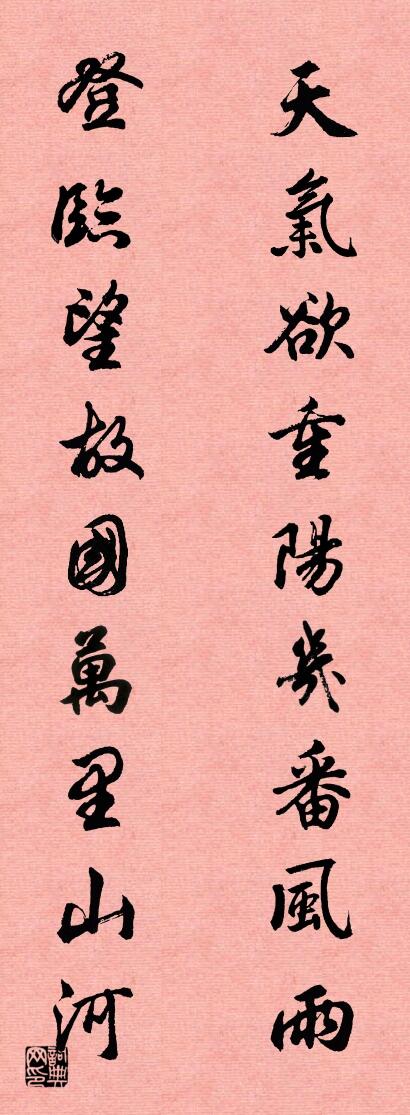 天氣欲重陽幾番風雨
登臨望故國萬里山河
詞典網印